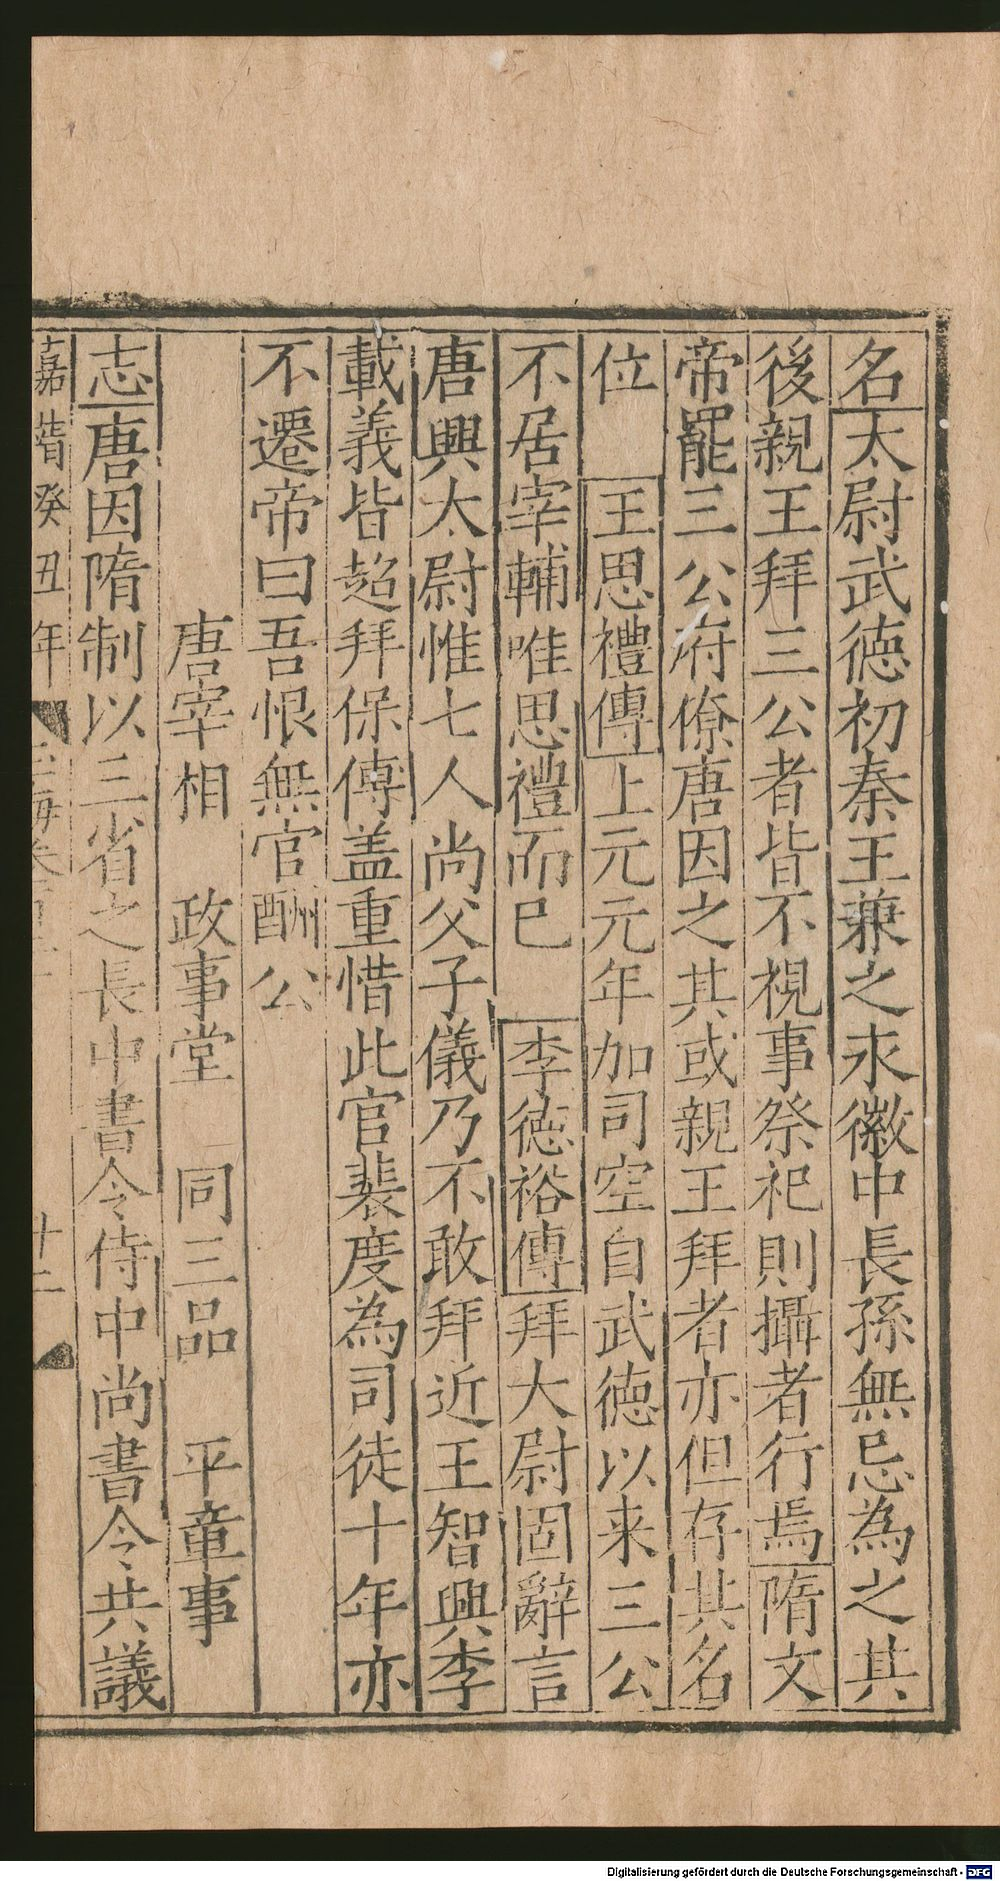 名太尉武徳初秦王兼之永徽中長孫無忌為之其
後親王拜三公者皆不視事祭祀則攝者行焉隋文
帝罷三公府僚唐因之其或親王拜者亦但存其名
位 王思禮傳上元元年加司空自武徳以来三公
不居宰輔唯思禮而已 李徳裕傳拜大尉固辭言
唐興太尉惟七人尚父子儀乃不敢拜近王智興李
載義皆超拜保傅盖重惜此官裴度為司徒十年亦
不遷帝曰吾恨無官酬公
唐宰相 政事堂 同三品 平章事
志唐因隋制以三省之長中書令侍中尚書令共議
嘉靖癸丑年 玉海卷 十二
Digitalisierung gefördert durch die Deutsche Forschungsgemeinschaft - DFG